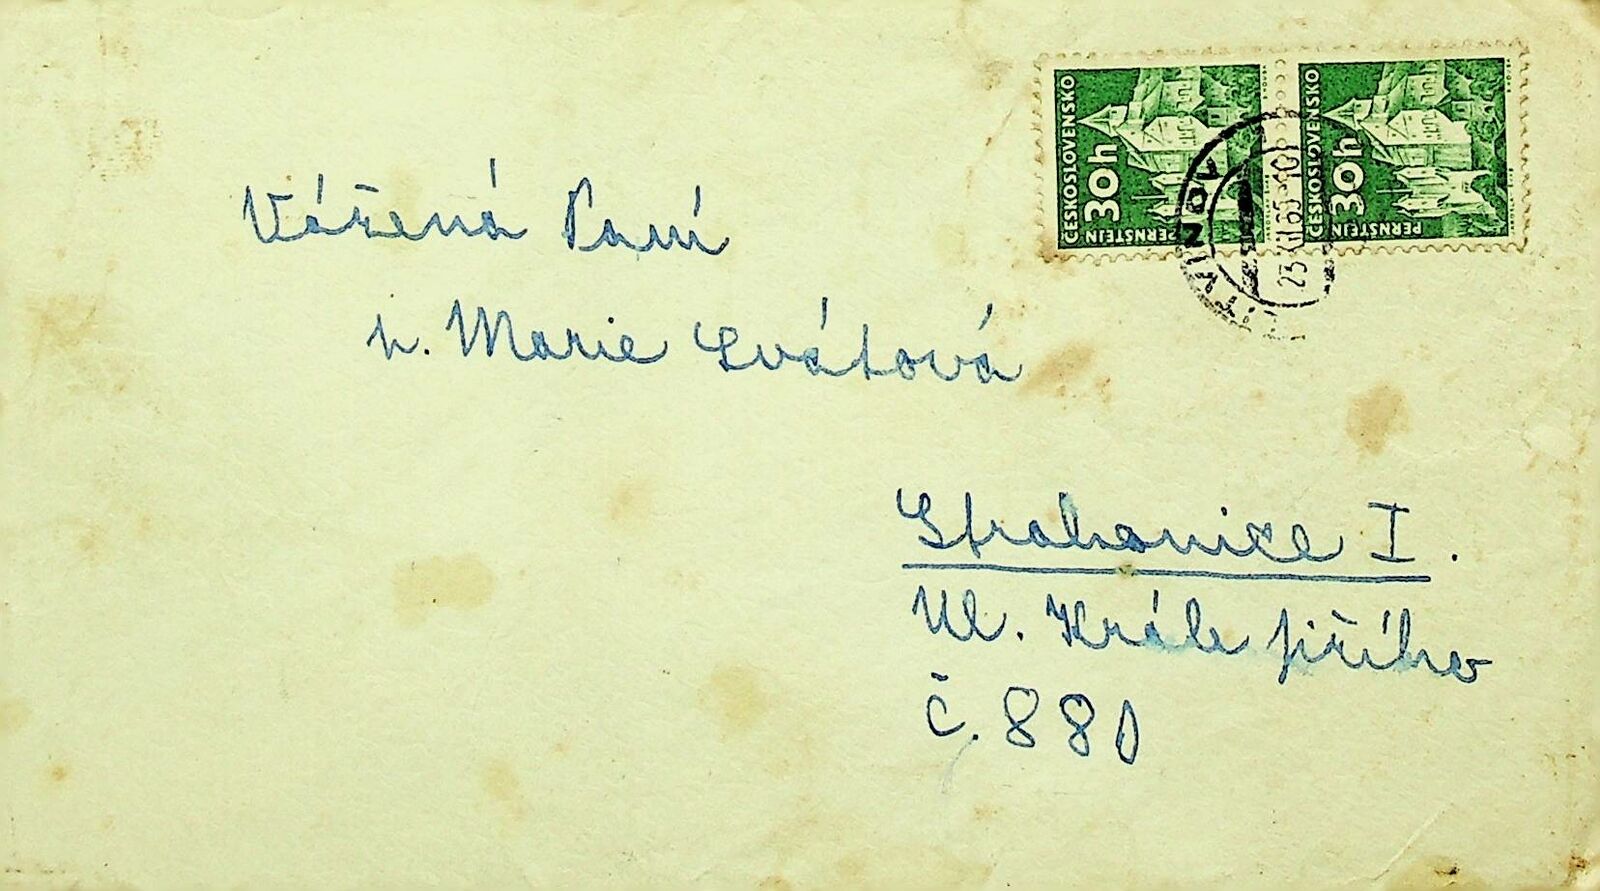 Vážená Paní
p. Marie Svátová
Strakonice I.
Ul. Krále jiřího
č. 880
ČESKOSLOVENSKO
30h
PERNŠTEJN
ČESKOSLOVENSKO
30h
PERNŠTEJN
23.XII.65-10